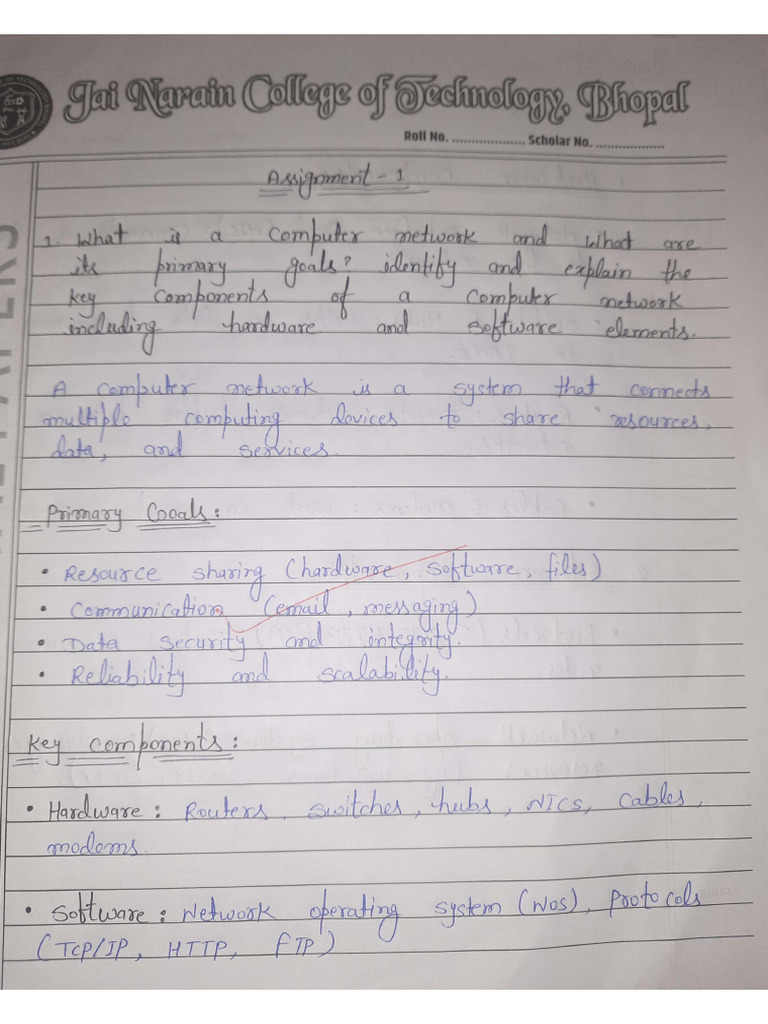 Jai Narain College of Technology, Bhopal
Roll No. .................. Scholar No. .................
Assignment - 1
1. What is a computer network and what are
its primary goals? identify and explain the
key components of a computer network
including hardware and software elements.
A computer network is a system that connects
multiple computing devices to share resources,
data, and services.
Primary Goals:
• Resource sharing (hardware, software, files)
• Communication (email, messaging)
• Data security and integrity.
• Reliability and scalability.
Key components:
• Hardware: Routers, switches, hubs, NICS, cables,
modems.
• Software: Network operating system (NOS), Protocols
(TCP/IP, HTTP, FTP)